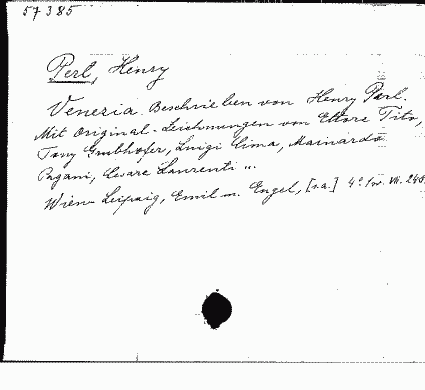 57385
Perl, Henry
Venezia. Beschrieben von Henry Perl.
Mit Original-Zeichnungen von Ettore Tito,
Tony Grubhofer, Luigi Cima, Mainardo
Pagani, Cesare Laurenti ...
Wien-Leipzig, Emil M. Engel, [s.a.] 4° VII. 248.